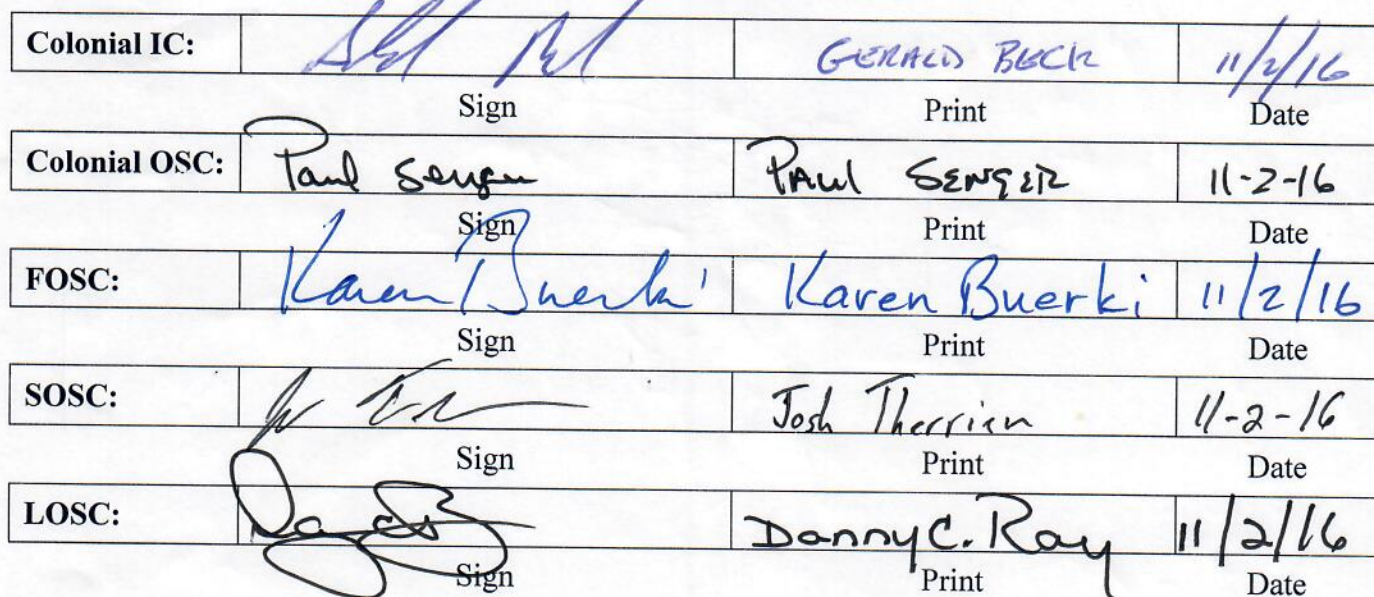 Colonial IC: GERALD BECK 11/2/16
Sign Print Date
Colonial OSC: Paul Senger PAUL SENGER 11-2-16
Sign Print Date
FOSC: Karen Buerki Karen Buerki 11/2/16
Sign Print Date
SOSC: Josh Therrien 11-2-16
Sign Print Date
LOSC: Danny C. Ray 11/2/16
Sign Print Date